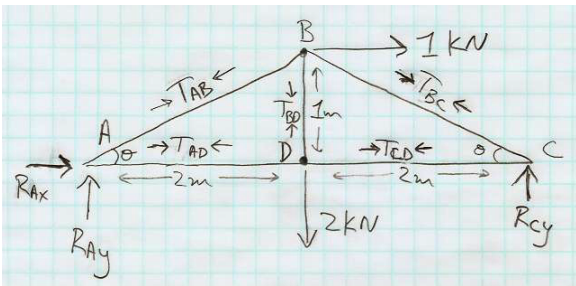 B
1 KN
T_AB
T_BC
T_BD
1m
A
θ
T_AD
D
T_CD
θ
C
R_Ax
2m
2m
R_Ay
2KN
R_Cy